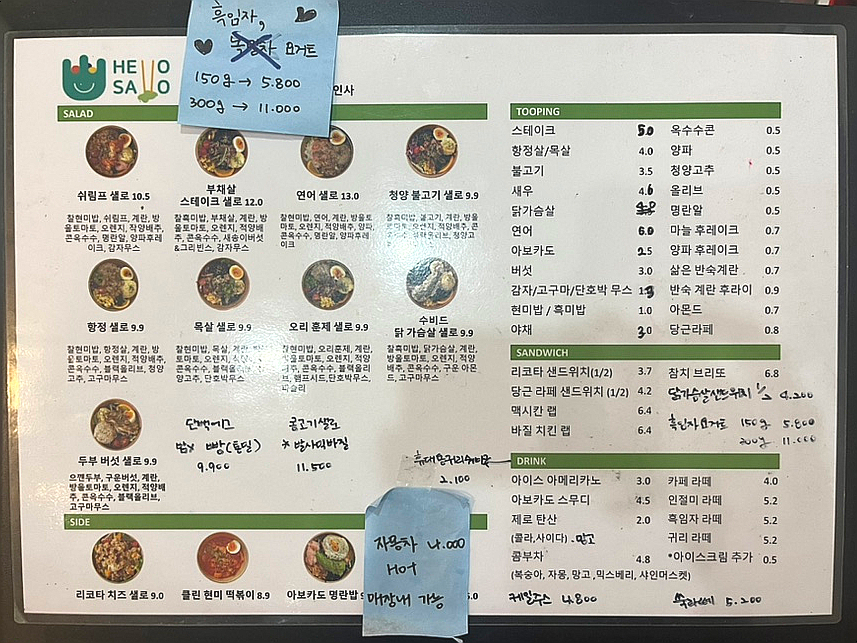 흑임자,
요거트
150g → 5.800
300g → 11.000
HELLO
SALLO
인사
SALAD
쉬림프 샐로 10.5
찰현미밥, 쉬림프, 계란, 방울토마토, 오렌지, 적양배추, 콘옥수수, 명란알, 양파후레이크, 감자무스
부채살
스테이크 샐로 12.0
찰흑미밥, 부채살, 계란, 방울토마토, 오렌지, 적양배추, 콘옥수수, 새송이버섯&그린빈스, 감자무스
연어 샐로 13.0
찰현미밥, 연어, 계란, 방울토마토, 오렌지, 적양배추, 양파, 콘옥수수, 명란알, 양파후레이크
청양 불고기 샐로 9.9
찰흑미밥, 불고기, 계란, 방울토마토, 오렌지, 적양배추, 콘옥수수, 블랙올리브, 청양고추
항정 샐로 9.9
찰현미밥, 항정살, 계란, 방울토마토, 오렌지, 적양배추, 콘옥수수, 블랙올리브, 청양고추, 고구마무스
목살 샐로 9.9
찰현미밥, 목살, 계란, 방울토마토, 오렌지, 적양배추, 콘옥수수, 블랙올리브, 청양고추, 단호박무스
오리 훈제 샐로 9.9
찰현미밥, 오리훈제, 계란, 방울토마토, 오렌지, 적양배추, 콘옥수수, 블랙올리브, 햄프시드, 단호박무스,
수비드
닭 가슴살 샐로 9.9
찰흑미밥, 닭가슴살, 계란, 방울토마토, 오렌지, 적양배추, 콘옥수수, 구운 아몬드, 고구마무스
두부 버섯 샐로 9.9
으깬두부, 구운버섯, 계란, 방울토마토, 오렌지, 적양배추, 콘옥수수, 블랙올리브, 고구마무스
단백에그
밥x 빵(토핑)
9.900
불고기샐로
*발사믹바질
11.500
SIDE
리코타 치즈 샐로 9.0
클린 현미 떡볶이 8.9
아보카도 명란밥
자몽차 4.000
HOT
매장내 가능
2.100
TOOPING
스테이크 5.0
항정살/목살 4.0
불고기 3.5
새우
닭가슴살
연어 6.0
아보카도 2.5
버섯 3.0
감자/고구마/단호박 무스
현미밥 / 흑미밥 1.0
야채
옥수수콘 0.5
양파 0.5
청양고추 0.5
올리브 0.5
명란알 0.5
마늘 후레이크 0.7
양파 후레이크 0.7
삶은 반숙계란 0.7
반숙 계란 후라이 0.9
아몬드 0.7
당근라페 0.8
SANDWICH
리코타 샌드위치(1/2) 3.7
당근 라페 샌드위치 (1/2) 4.2
맥시칸 랩 6.4
바질 치킨 랩 6.4
참치 브리또 6.8
닭가슴살샌드위치 1/2 4.200
흑임자요거트 150g 5.800
300g 11.000
DRINK
아이스 아메리카노 3.0
아보카도 스무디 4.5
제로 탄산 2.0
(콜라,사이다) .망고
콤부차 4.8
(복숭아, 자몽, 망고,믹스베리, 샤인머스켓)
케일주스 4.800
카페 라떼 4.0
인절미 라떼 5.2
흑임자 라떼 5.2
귀리 라떼 5.2
*아이스크림 추가 0.5
쑥라떼 5.200